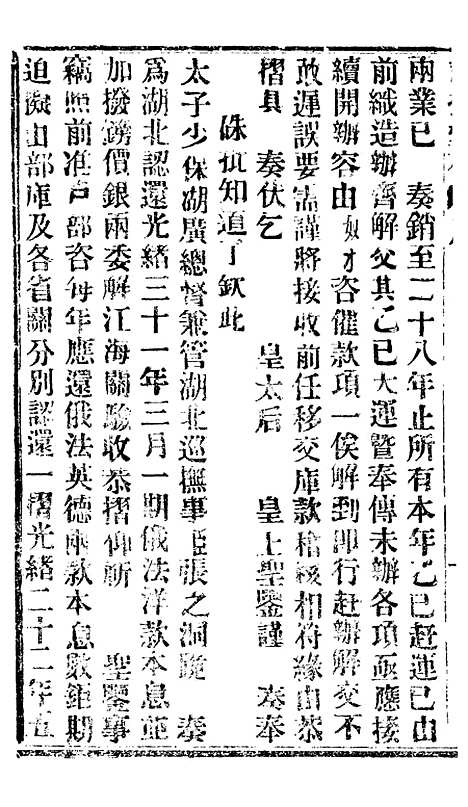 兩業已　奏銷至二十八年止所有本年乙巳趕運已由
前織造辦齊解交其乙巳大運暨奉傳未辦各項亟應接
續開辦容由奴才咨催款項一俟解到即行赶辦解交不
敢遲誤要需謹將接收前任移交庫款稽核相符緣由恭
摺具　奏伏乞　皇太后　皇上聖鑒謹　奏奉
硃批知道了欽此
太子少保湖廣總督兼管湖北巡撫事臣張之洞跪　奏
爲湖北認還光緒三十一年三月一期俄法洋款本息並
加撥鎊價銀兩委解江海關驗收恭摺仰祈　聖鑒事
竊照前准戶部咨每年應還俄法英德兩款本息數鉅期
迫擬由部庫及各省關分別認還一摺光緒二十二年五